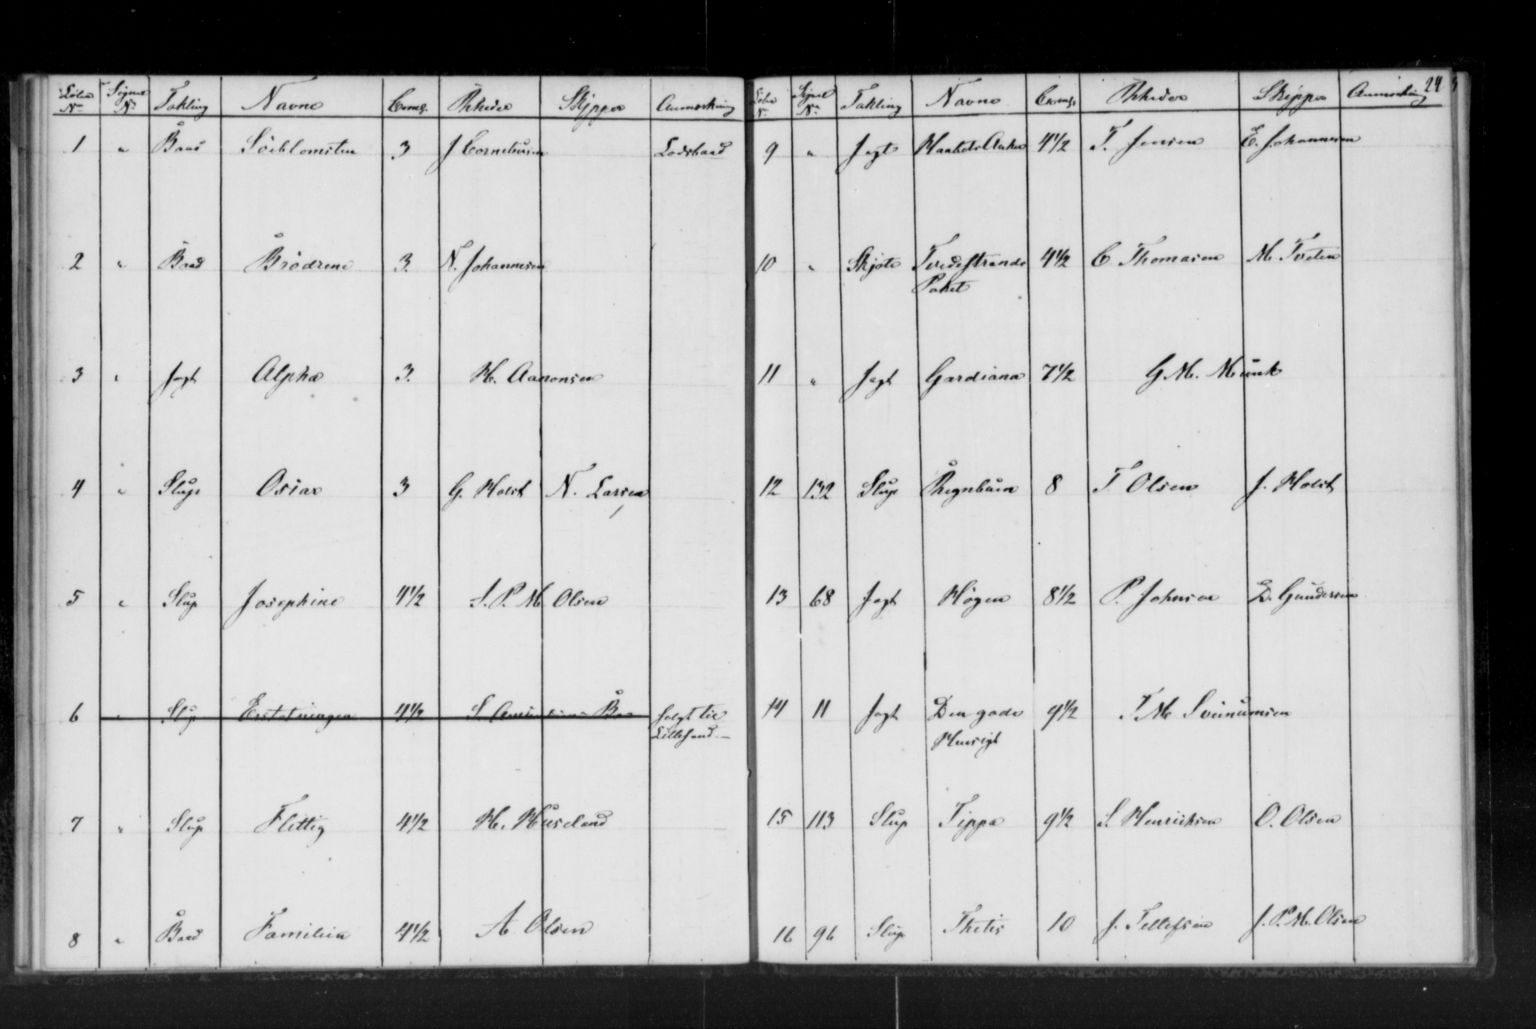 Löbe Signal Takling Navne Comsl. Rheder Skipper Anmerkning
No No
1 " Baad Söeblomsten 3 J Corneliusen Lodsbaad
2 " Baad Brödrene 3. N. Johannesen
3 " Jagt Alpha 3. H. Aanonsen
4 " Slup Oscar 3 G. Holst N. Larsen
5 " Slup Josephine 4 1/2 S. P. M. Olsen
6 " Slup Erstatningen 4 1/2 S. solgt til
Lillesand
7 " Slup Flittig 4 1/2 H. Huseland
8 " Baad Familien 4 1/2 A. Olsen
24
Löbe Signal Takling Navne Comsl. Rheder Skipper Anmerkning
No No
9 " Jagt 4 1/2 T. Jensen E. Johannesen
10 " Skjöte Tvedestrands 4 1/2 C Thomasen M. Tveten
Paket
11 " Jagt Gardiana 7 1/2 G. M. Munk
12 132 Slup Regnbuen 8 T. Olsen J. Holst
13 68 Jagt Högen 8 1/2 P. Johnsen Gundersen
14 11 Jagt Den gode 9 1/2 T M Sveinumsen
Hensigt
15 113 Slup Tippa 9 1/2 S. Henriksen O. Olsen
16 96 Slup Thetis 10 J. Tellefsen J. P. M. Olsen